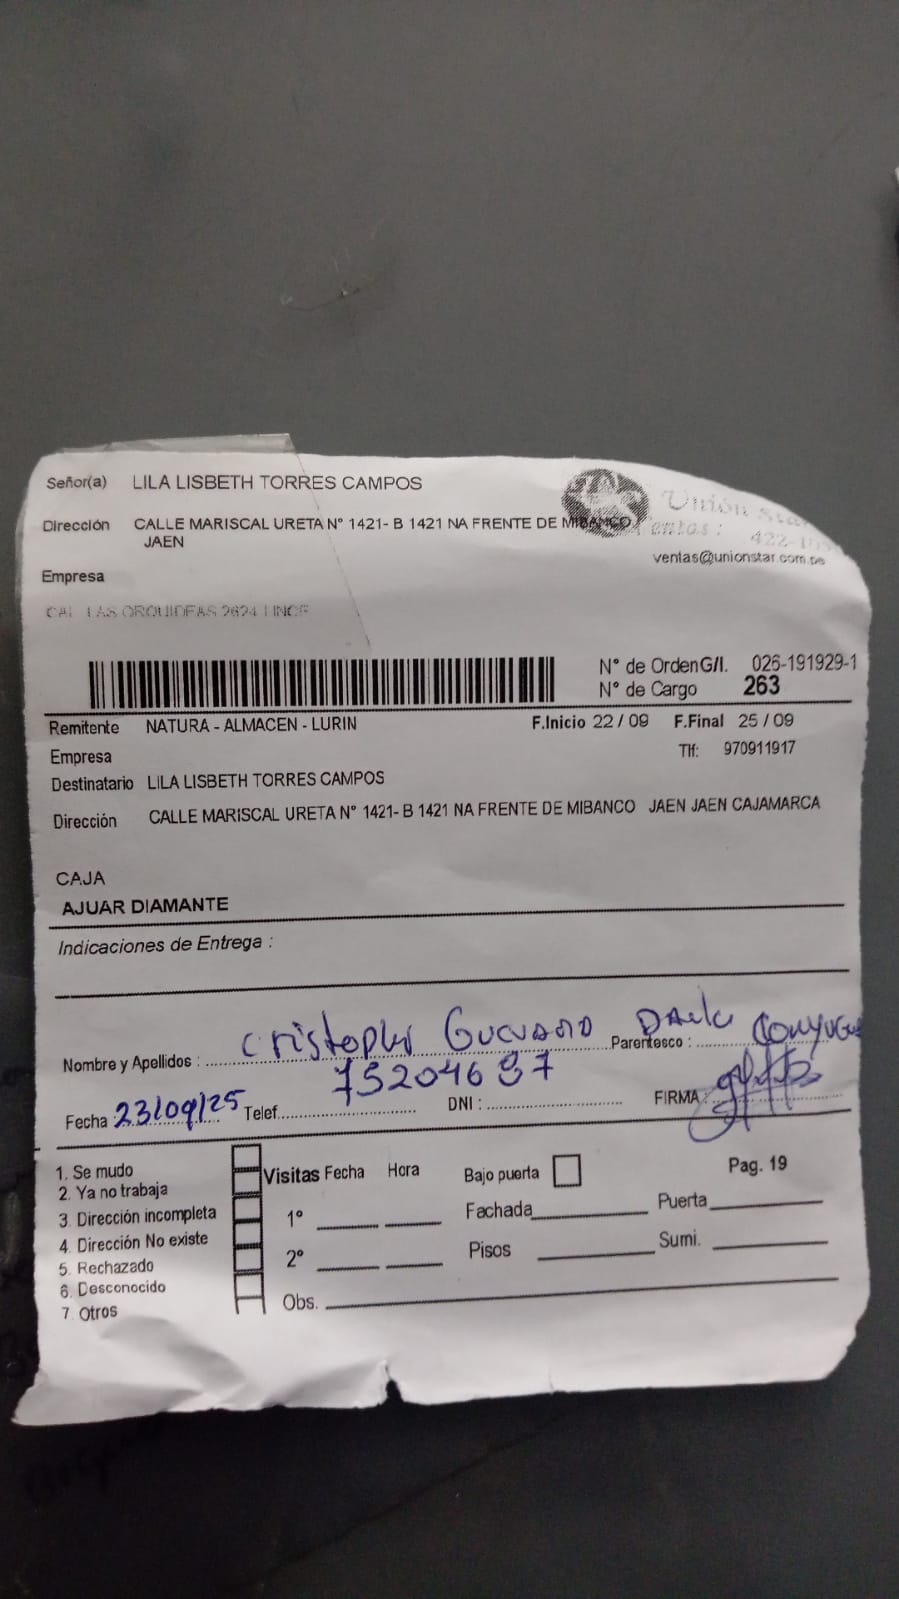 Señor(a) LILA LISBETH TORRES CAMPOS
Dirección CALLE MARISCAL URETA N° 1421- B 1421 NA FRENTE DE MIBANCO
JAEN
Unión Star
Ventas: 422-
ventas@unionstar.com.pe
Empresa
CAL LAS ORQUIDEAS 2624 LINCE
N° de OrdenG/I. 026-191929-1
N° de Cargo 263
Remitente NATURA - ALMACEN - LURIN F.Inicio 22 / 09 F.Final 25 / 09
Empresa Tlf: 970911917
Destinatario LILA LISBETH TORRES CAMPOS
Dirección CALLE MARISCAL URETA N° 1421- B 1421 NA FRENTE DE MIBANCO JAEN JAEN CAJAMARCA
CAJA
AJUAR DIAMANTE
Indicaciones de Entrega :
Nombre y Apellidos : Parentesco : Conyuge
Fecha 23/09/25 Telef. DNI : FIRMA :
1. Se mudo
2. Ya no trabaja
3. Dirección incompleta
4. Dirección No existe
5. Rechazado
6. Desconocido
7. Otros
Visitas Fecha Hora Bajo puerta Pag. 19
1° Fachada Puerta
2° Pisos Sumi.
Obs.